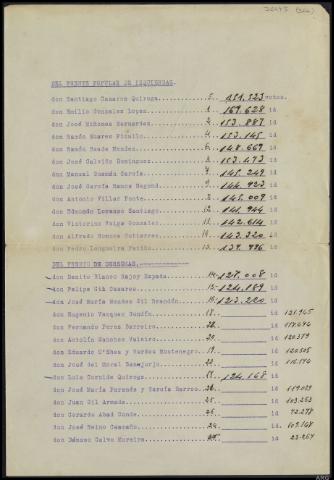 DEL FRENTE POPULAR DE IZQUIERDAS.
don Santiago Casares Quiroga 5. 151.323 votos.
don Emilio Gonzalez Lopez 1. 159.628 id
don José Miñones Bernardez 2. 153.887 id
don Ramón Suarez Picallo 4. 153.145 id
don Ramón Beade Mendez 6. 148.669 id
don José Calviño Dominguez 3. 153.473 id
don Manuel Guzmán García 7. 145.249 id
don José García Ramos Segond 9. 144.923 id
don Antonio Villar Ponte 8. 145.009 id
don Edmundo Lorenzo Santiago 12. 141.944 id
don Victorino Veiga Gonzalez 11. 142.614 id
don Alfredo Somoza Gutierrez 10. 143.320 id
don Pedro Longueira Patiño 13. 139.996 id
DEL FRENTE DE DERECHAS.
don Benito Blanco Rajoy Espada 14. 127.008 id
don Felipe Gil Casares 15. 124.189 id
don José María Mendez Gil Brandón 16. 123.220 id
don Eugenio Vazquez Gundín 18. id 121.965
don Fernando Perez Barreiro id
don Antolín Sanchez Valeiro id 120.379
don Eduardo O'Shea y Verdes Montenegro 19. id 120.505
don José del Moral Sanejurjo 23. id
don Luis Cornide Quiroga 17. 124.168 id
don José María Parondo y García Barros id 119.029
don Juan Gil Armada 25. id 103.253
don Gerardo Abad Conde id 72.278
don José Reino Caamaño 24. id 109.168
don Dámaso Calvo Moreiro id